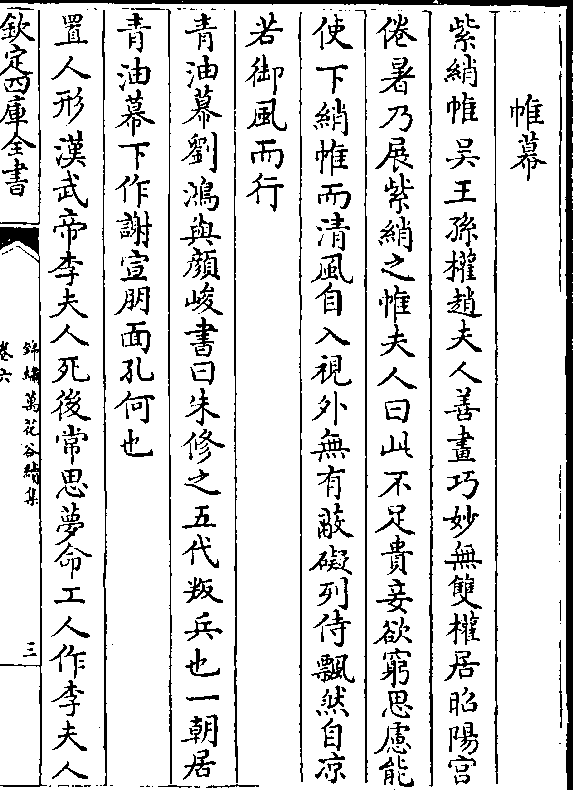 帷幕
紫綃帷吳王孫權趙夫人善畫巧妙無雙權居昭陽宮
倦暑乃展紫綃之帷夫人曰此不足貴妾欲窮思慮能
使下綃帷而清風自入視外無有蔽礙列侍飄然自凉
若御風而行
青油幕劉鴻與顔峻書曰朱修之五代叛兵也一朝居
青油幕下作謝宣朋面孔何也
置人形漢武帝李夫人死後常思夢命工人作李夫人
欽定四庫全書
錦繡萬花谷續集
卷六
三